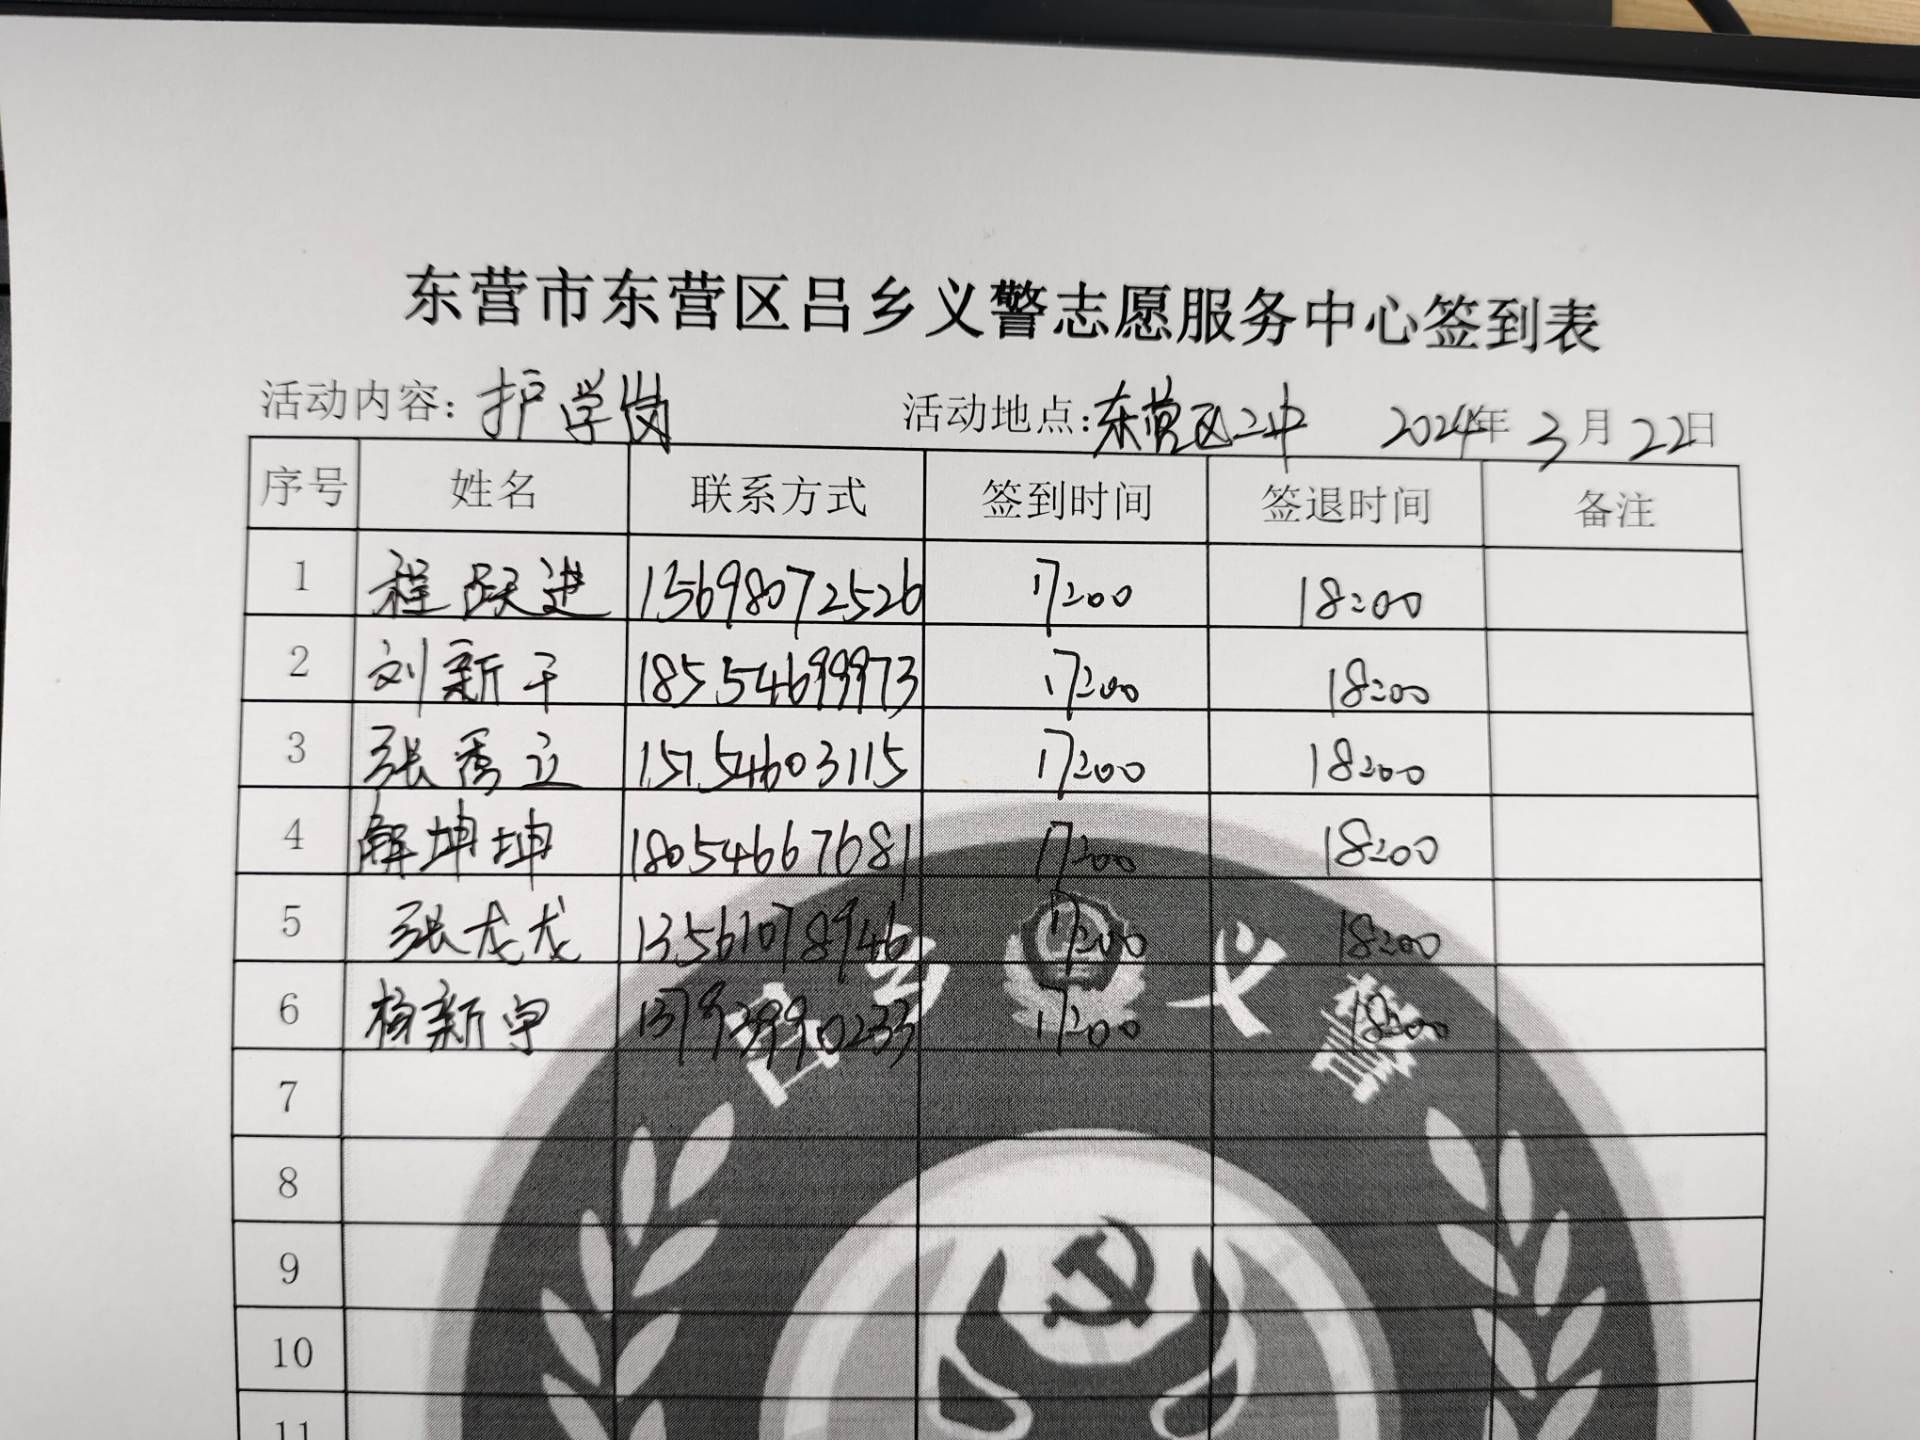 东营市东营区吕乡义警志愿服务中心签到表
活动内容：护学岗 活动地点：东营区二中 2024年3月22日
序号 姓名 联系方式 签到时间 签退时间 备注
1 程跃进 15698072526 17:00 18:00
2 刘新干 18554699973 17:00 18:00
3 张秀立 15754603115 17:00 18:00
4 解坤坤 18054667681 17:00 18:00
5 张龙龙 13561078946 17:00 18:00
6 杨新宇 13793990233 17:00 18:00
吕乡义警
7
8
9
10
11